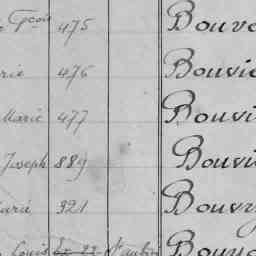 Fçois 475 Bouve
rie 476 Bouvie
Marie 477 Bouvi
Joseph 889 Bouvi
Marie 321 Bouvy
Louis St aubin Bouv